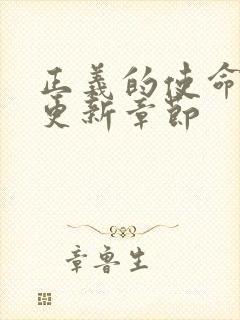 正義的使命
更新章節
章魯生